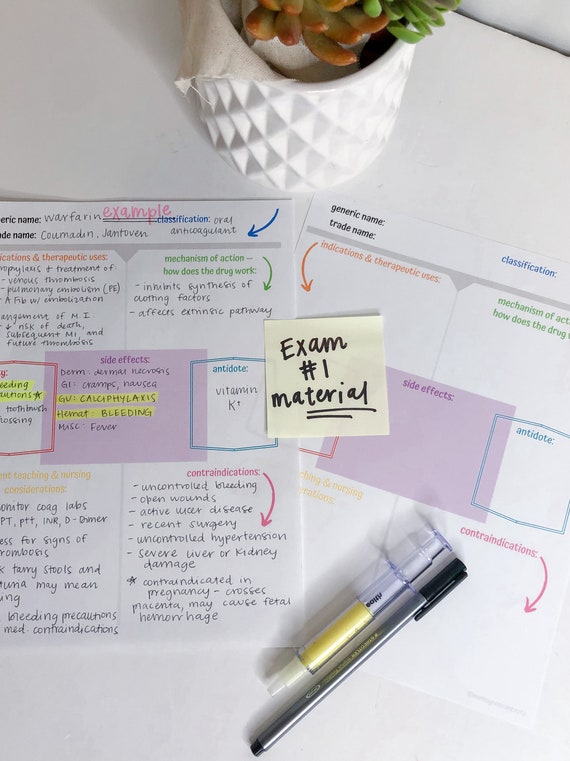 neric name: warfarin example classification: oral anticoagulant
ade name: Coumadin, Jantoven
ications & therapeutic uses:
ophylaxis + treatment of
- venous thrombosis
- pulmonary embolism (PE)
- A Fib w/ embolization
angement of M.I.
↓ risk of death,
subsequent MI, and
future thrombosis
mechanism of action –
how does the drug work:
- inhibits synthesis of
clotting factors
- affects extrinsic pathway
ty:
eeding
autions ★
toothbrush
ossing
side effects:
Derm: dermal necrosis
GI: cramps, nausea
GU: CALCIPHYLAXIS
Hemat: BLEEDING
Misc: Fever
antidote:
vitamin
K+
ent teaching & nursing
considerations:
onitor coag labs
PT, ptt, INR, D-Dimer
ess for signs of
rombosis
k tarry stools and
una may mean
ng
bleeding precautions
med. contraindications
contraindications:
- uncontrolled bleeding
- open wounds
- active ulcer disease
- recent surgery
- uncontrolled hypertension
- severe liver or kidney
damage
★ contraindicated in
pregnancy - crosses
placenta, may cause fetal
hemorrhage
Exam
#1
material
generic name:
trade name:
classification:
indications & therapeutic uses:
mechanism of act
how does the drug
side effects:
antidote:
ching & nursing
erations:
contraindications: